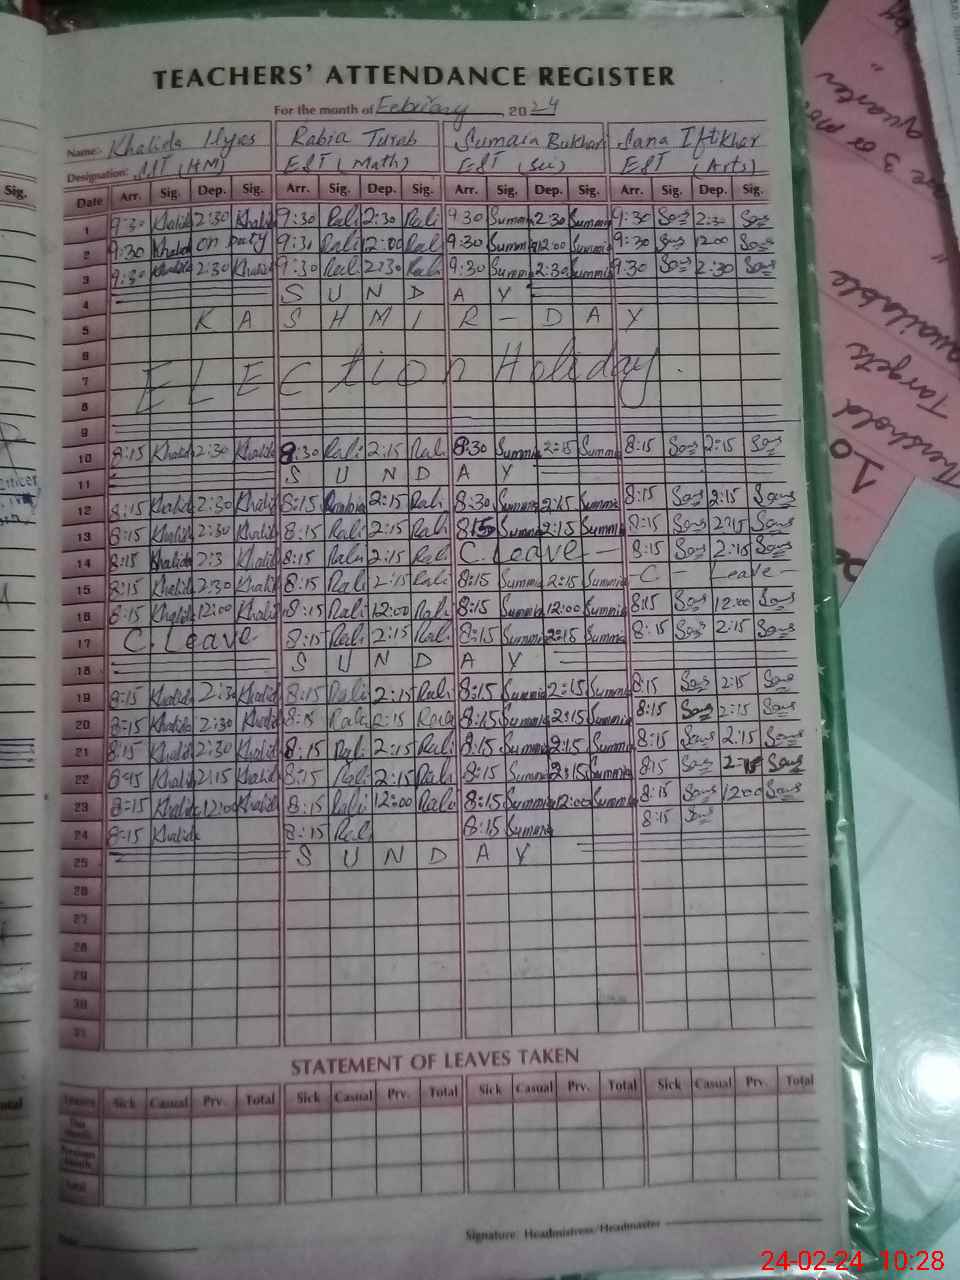 TEACHERS' ATTENDANCE REGISTER
For the month of February 2024
Name:- Khalida Ilyas Rabia Turab Sumaia Bukhari Sana Iftikhar
Designation: SST (HM) EST (Math) EST (Sci) EST (Arts)
Date Arr. Sig. Dep. Sig. Arr. Sig. Dep. Sig. Arr. Sig. Dep. Sig. Arr. Sig. Dep. Sig.
1 9:30 Khalid 2:30 Khalid 9:30 Rali 2:30 Rali 9:30 Summi 2:30 Summi 9:30 2:30
2 9:30 Khalid on Duty 9:30 Rali 12:00 Rali 9:30 Summi 12:00 Summi 9:30 12:00
3 9:30 Khalid 2:30 Khalid 9:30 Rali 2:30 Rali 9:30 Summi 2:30 Summi 9:30 2:30
4 S U N D A Y
5 K A S H M I R - D A Y
6
7 ELECtion Holiday.
8
9
10 8:15 Khalid 2:30 Khalid 8:30 Rali 2:15 Rali 8:30 Summi 2:15 Summi 8:15 2:15
11 S U N D A Y
12 8:15 Khalid 2:30 Khalid 8:15 Rabia 2:15 Rali 8:30 Summi 2:15 Summi 8:15 2:15
13 8:15 Khalid 2:30 Khalid 8:15 Rali 2:15 Rali 8:15 Summi 2:15 Summi 8:15 2:15
14 8:15 Khalid 2:3 Khalid 8:15 Rali 2:15 Rali C. Leave - 8:15 2:15
15 8:15 Khalid 2:30 Khalid 8:15 Rali 2:15 Rali 8:15 Summi 2:15 Summi - C - Leave -
16 8:15 Khalid 12:00 Khalid 8:15 Rali 12:00 Rali 8:15 Summi 12:00 Summi 8:15 12:00
17 C. Leave 8:15 Rali 2:15 Rali 8:15 Summi 2:15 Summi 8:15 2:15
18 S U N D A Y
19 8:15 Khalid 2:30 Khalid 8:15 Rali 2:15 Rali 8:15 Summi 2:15 Summi 8:15 2:15
20 8:15 Khalid 2:30 Khalid 8:15 Rali 2:15 Rali 8:15 Summi 2:15 Summi 8:15 2:15
21 8:15 Khalid 2:30 Khalid 8:15 Rali 2:15 Rali 8:15 Summi 2:15 Summi 8:15 2:15
22 8:15 Khalid 2:15 Khalid 8:15 Rali 2:15 Rali 8:15 Summi 2:15 Summi 8:15 2:15
23 8:15 Khalid 12:00 Khalid 8:15 Rali 12:00 Rali 8:15 Summi 12:00 Summi 8:15 12:00
24 8:15 Khalid 8:15 Rali 8:15 Summi 8:15
25 S U N D A Y
26
27
28
29
30
31
STATEMENT OF LEAVES TAKEN
Leaves Sick Casual Prv. Total Sick Casual Prv. Total Sick Casual Prv. Total Sick Casual Prv. Total
This Month
Previous Month
Total
Signature: Headmistress/Headmaster
Date
Sig.
quarter
available
Targets
Threshold
10
24-02-24 10:28